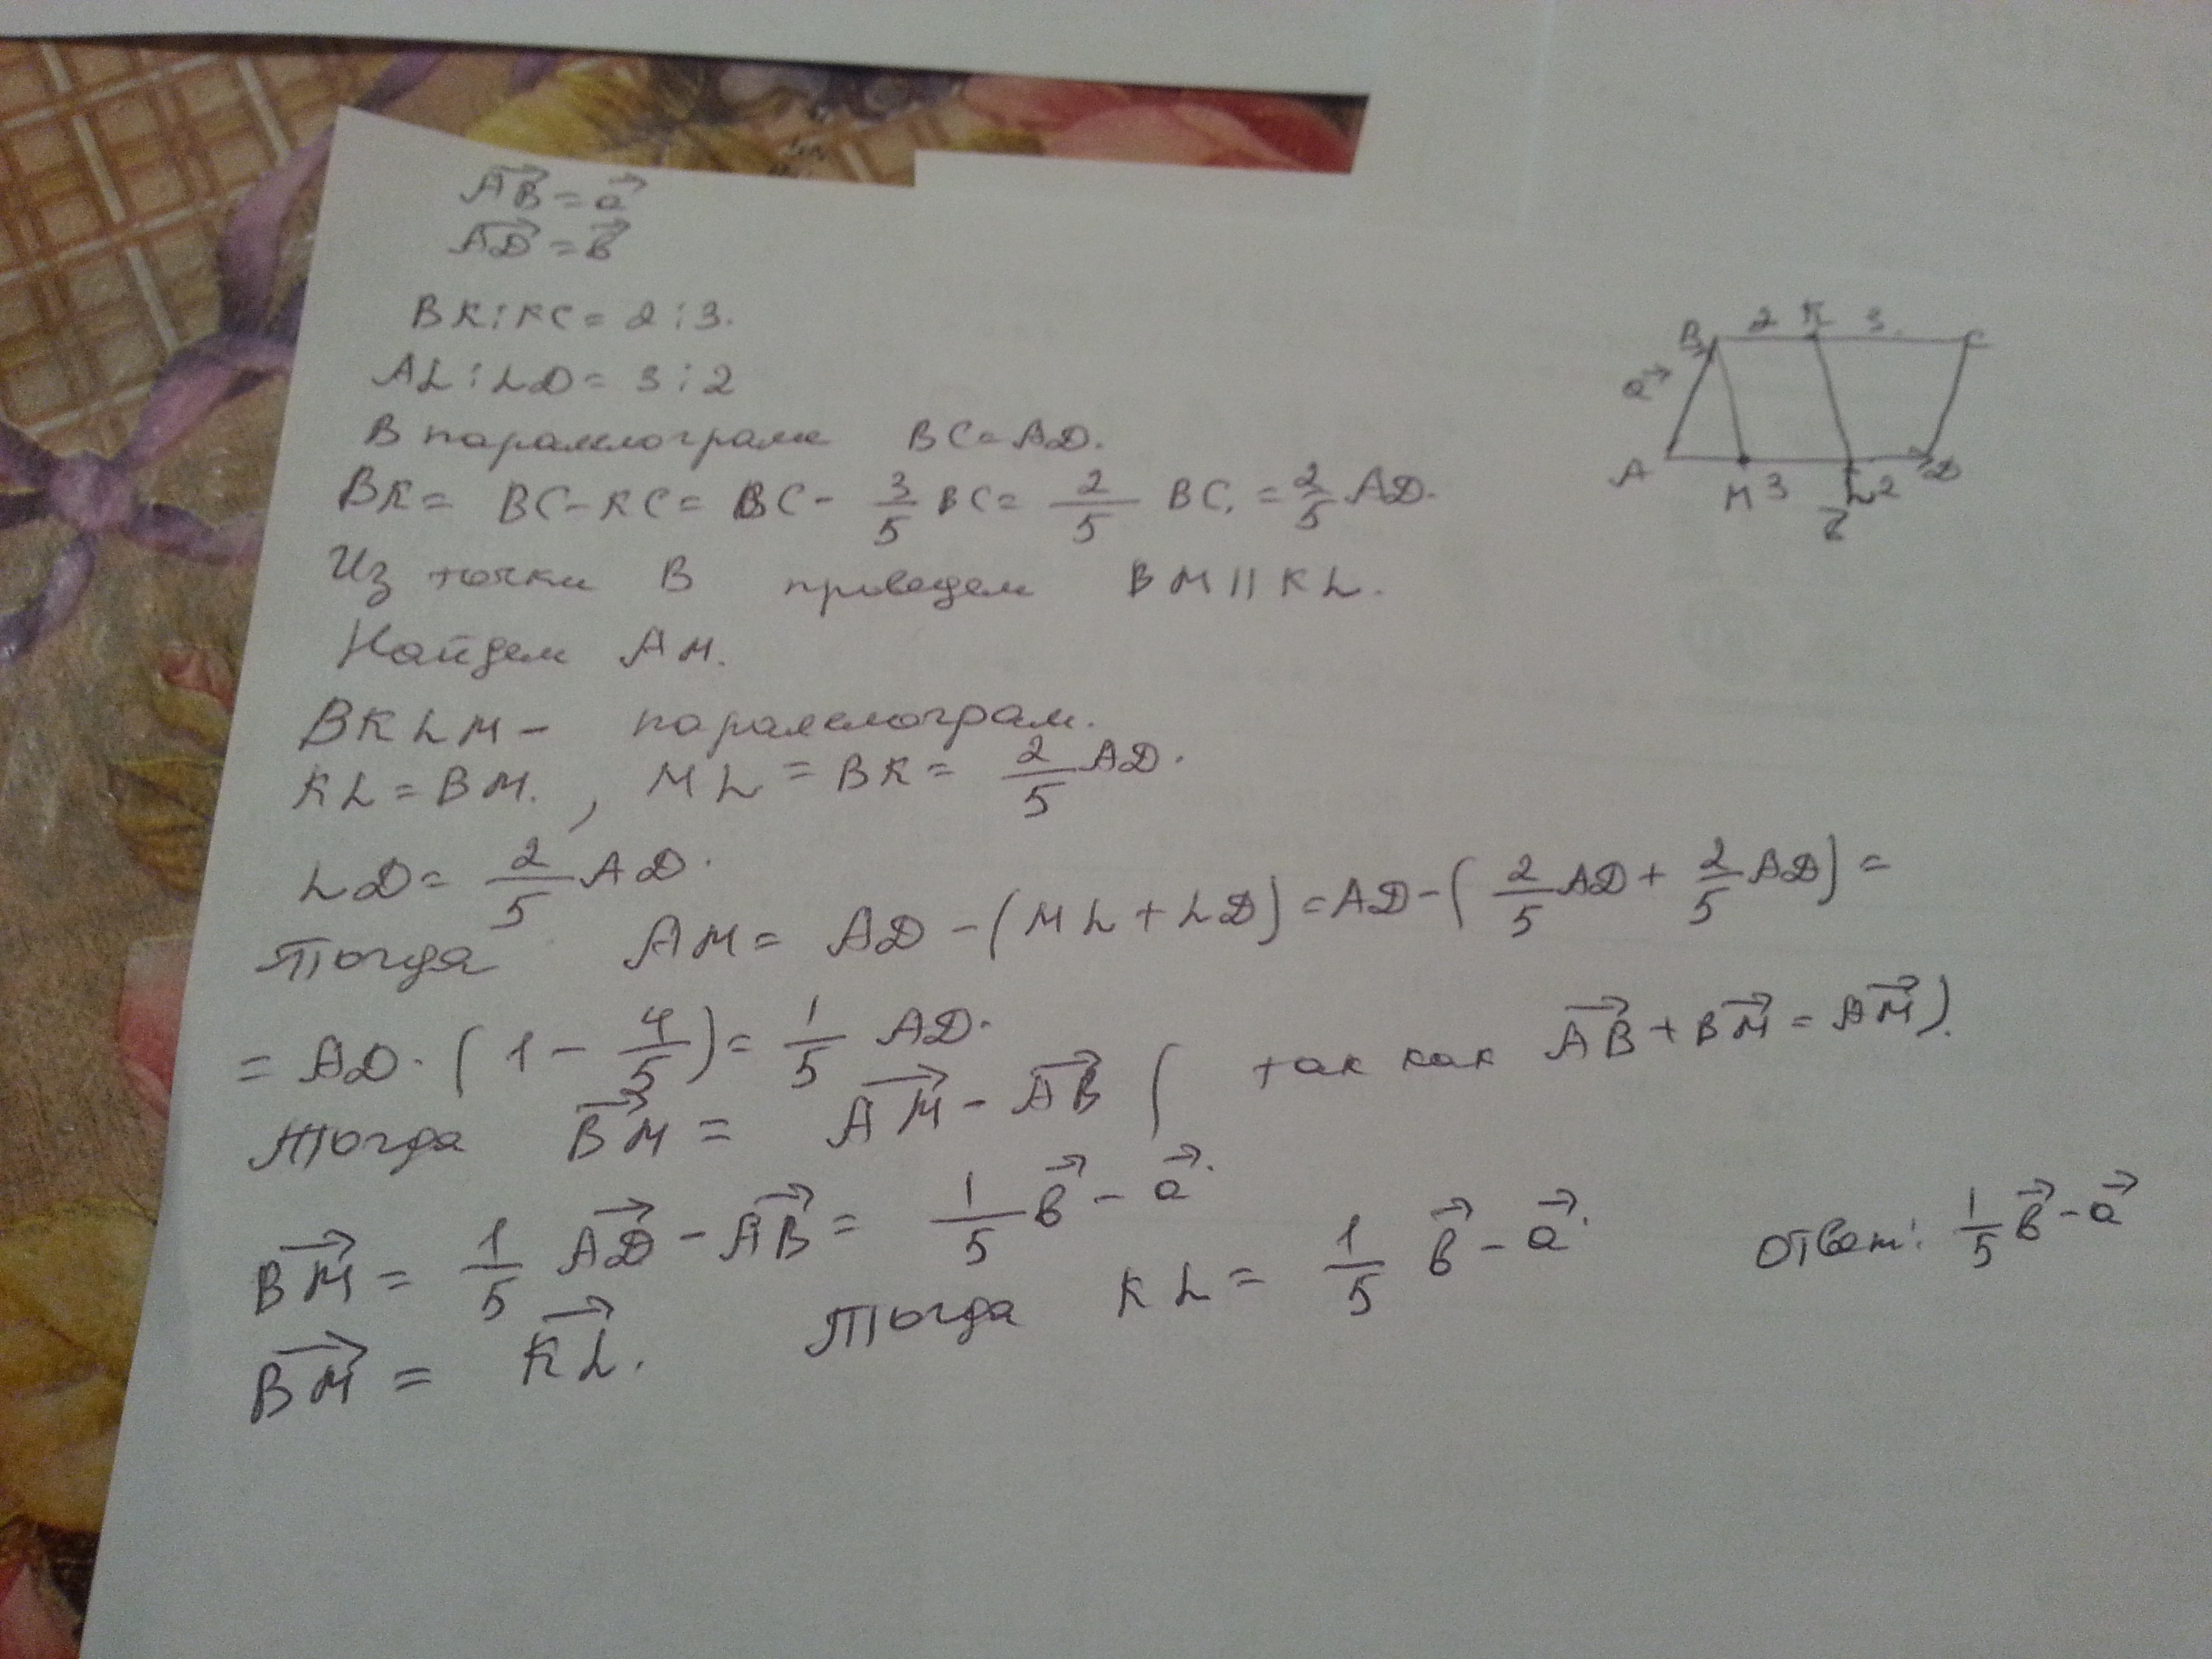 AB⃗ = a⃗
AD⃗ = в⃗
BK:KC = 2:3.
AL:LD = 3:2
В паралелограме BC = AD.
BK = BC - KC = BC - 3/5 BC = 2/5 BC. = 2/5 AD.
Из точки B проведем BM || KL.
Найдем AM.
BKLM - паралелограм.
KL = BM. , ML = BK = 2/5 AD.
LD = 2/5 AD.
Тогда AM = AD - (ML + LD) = AD - (2/5 AD + 2/5 AD) =
= AD · (1 - 4/5) = 1/5 AD.
Тогда BM⃗ = AM⃗ - AB⃗ (так как AB⃗ + BM⃗ = AM⃗).
BM⃗ = 1/5 AD⃗ - AB⃗ = 1/5 в⃗ - a⃗.
BM⃗ = KL⃗. Тогда KL = 1/5 в⃗ - a⃗.
Ответ: 1/5 в⃗ - a⃗
B 2 K 3. C
a⃗
A M 3 L 2 D